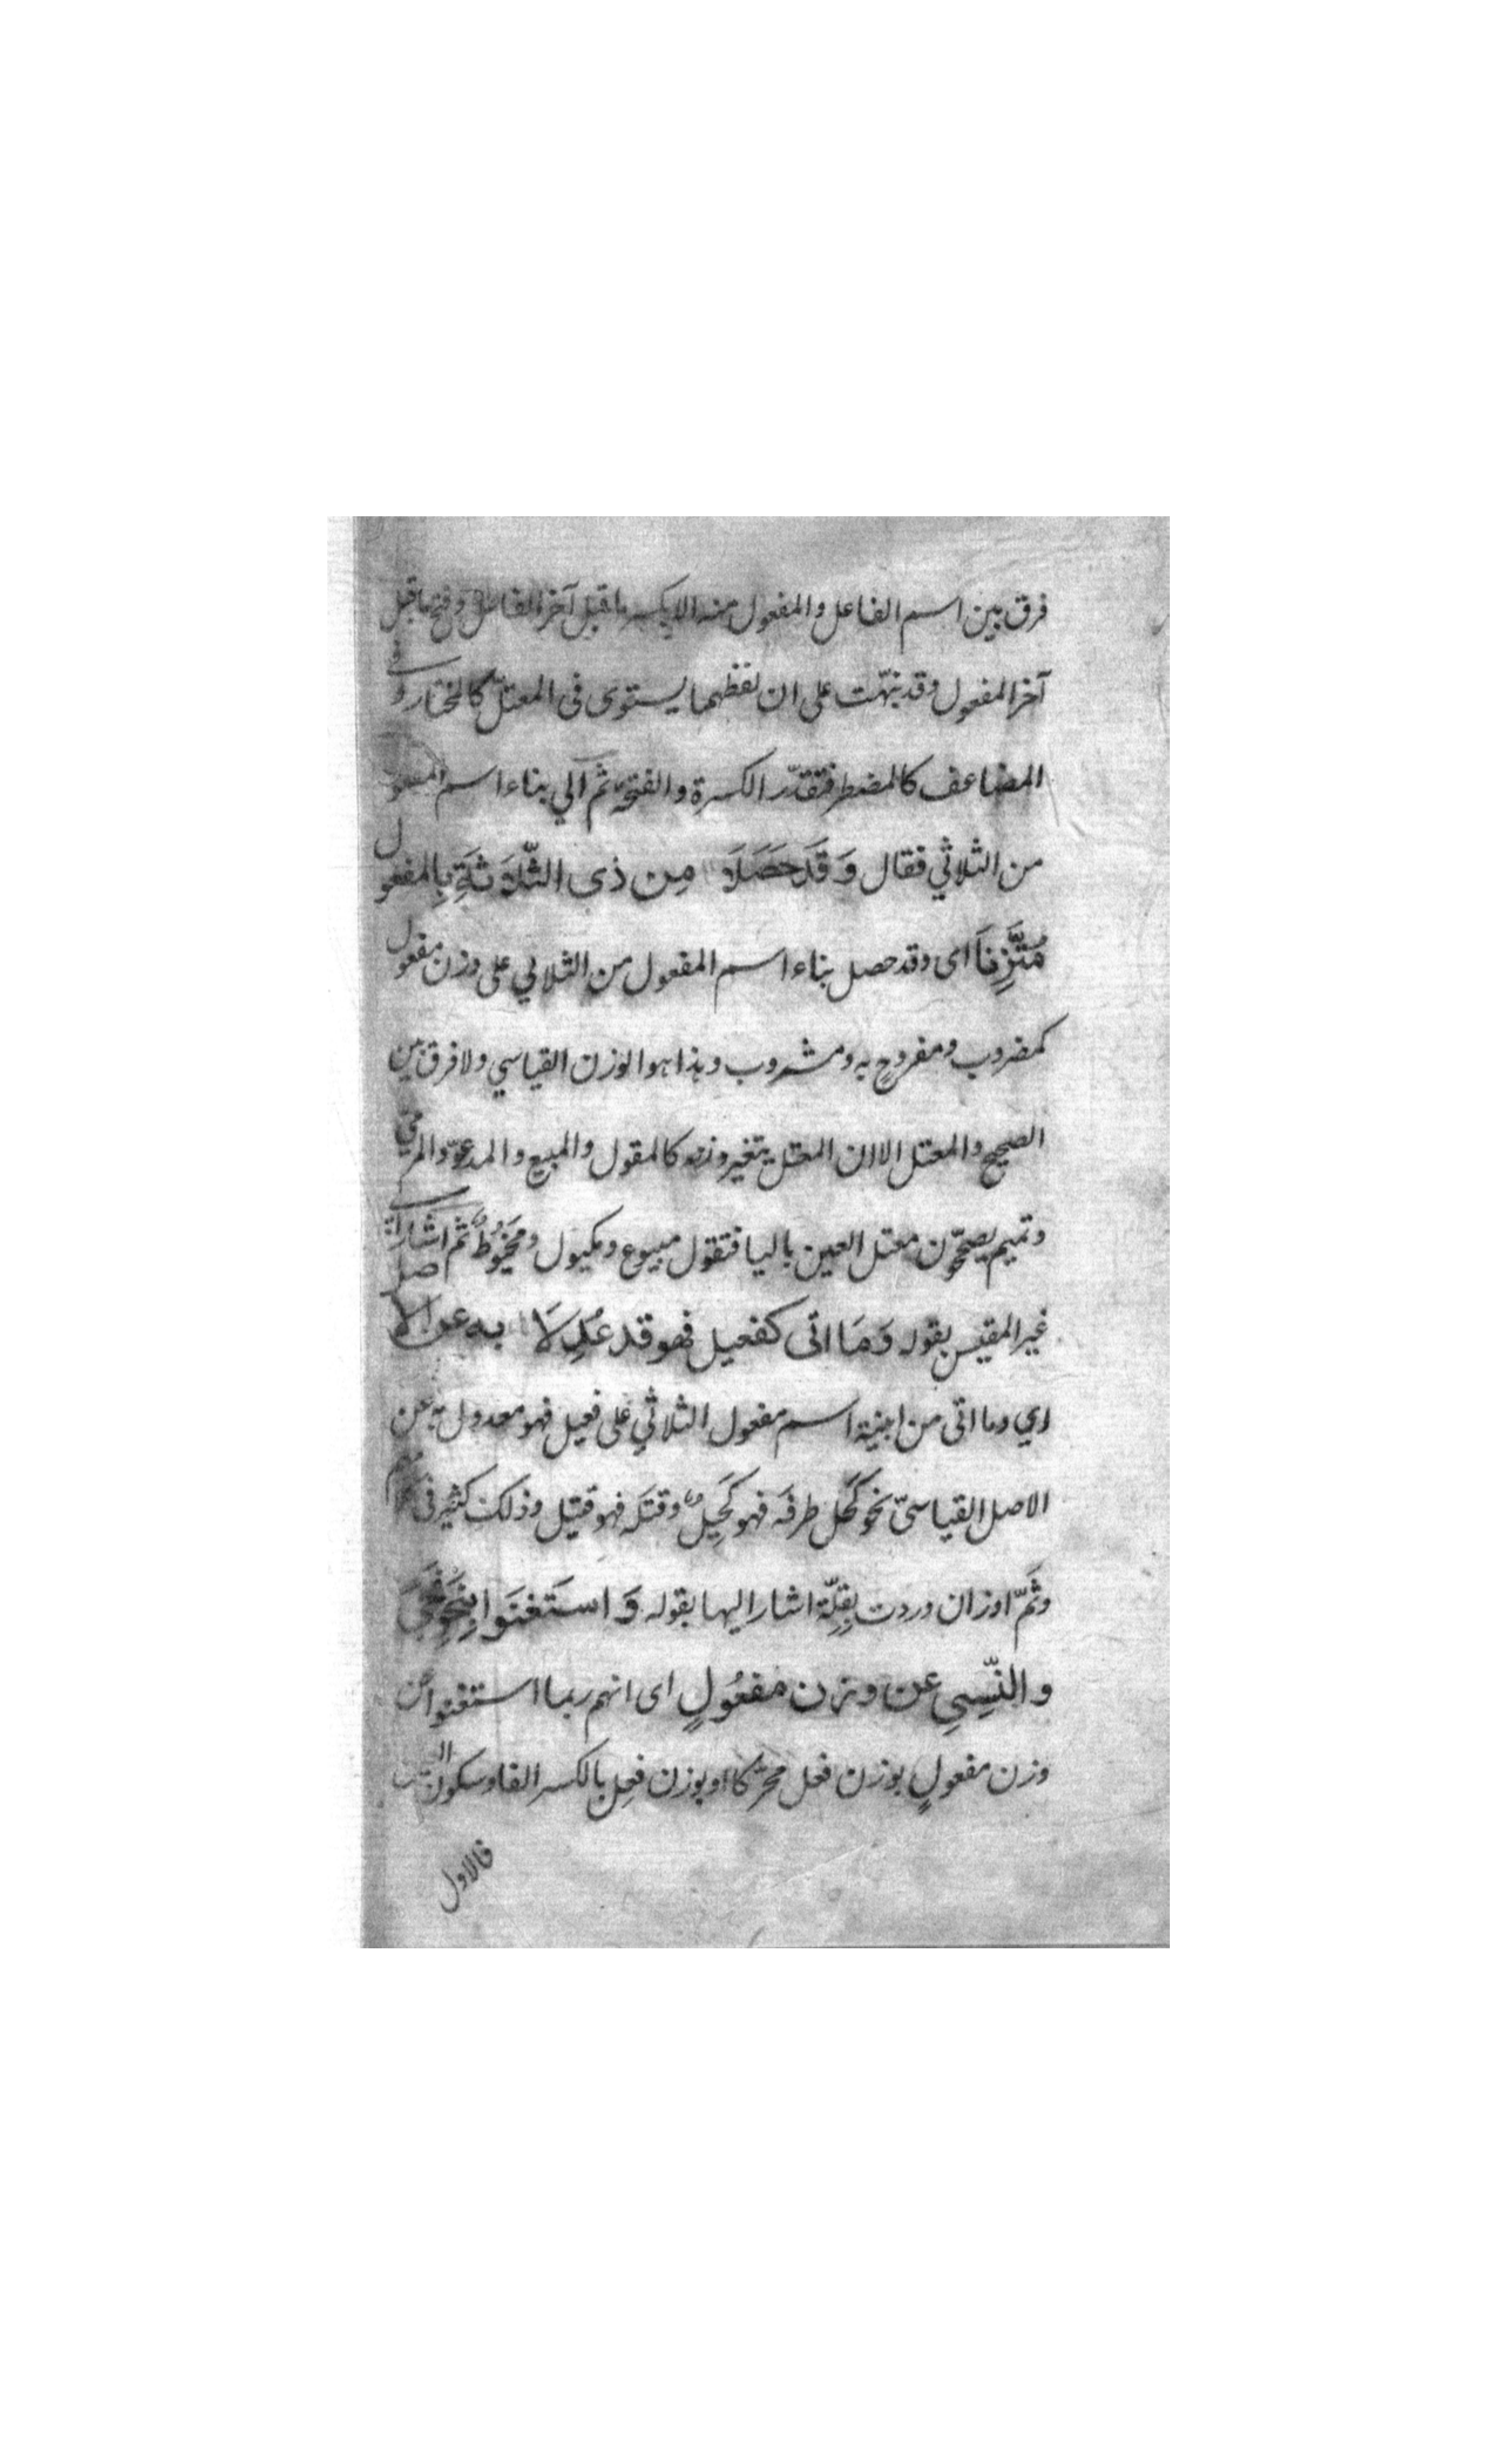 فرق بين اسم الفاعل والمفعول منه الا بكسر ما قبل آخر الفاعل وفتح ما قبل
آخر المفعول وقد نبّهت على ان لفظهما يستوى فى المعتلّ كالمختار وفى
المضاعف كالمضطر فتقدّر الكسرة والفتحة ثم الي بناء اسم المفعول
من الثلاثي فقال وَقَد حَصَلَا مِن ذى الثّلَاثَةِ بِالمفعول
مُتَّزِنَا اى وقد حصل بناء اسم المفعول من الثلاثي على وزن مفعول
كمضروب ومفروح به ومشروب وهذا هو الوزن القياسي ولا فرق بين
الصحيح والمعتل الا ان المعتل يتغير وزنه كالمقول والمبيع والمدعوّ والمرمي
وتميم يصحّحون معتل العين باليا فتقول مبيوع ومكيول ومَخْيُوطٌ ثم اشار الى
غير المقيس بقوله وَمَا اتى كفعيل فهو قد عُدِلَا به عن الاصل
اي وما اتى من ابنية اسم مفعول الثلاثي على فعيل فهو معدول به عن
الاصل القياسىّ نحو كَحَل طرفَه فهو كَحِيلٌ وقتَله فهو قتيل وذلك كثير فى
وثَمّ اوزان وردت بقِلّة اشار اليها بقوله وَاستَغنَوا بِنَحوِ نَجَا
والنِّسيِ عن وزن مفعُولٍ اى انهم ربما استغنوا عن
وزن مفعولٍ بوزن فعل محرّكا او بوزن فعِل بالكسر الفا وسكون
فالاول